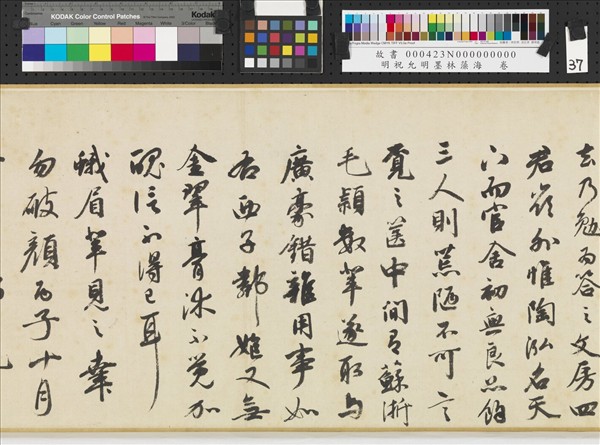 KODAK Color Control Patches
Kodak
故書 000423N000000000
明祝允明墨林藻海 卷
37
去乃勉為答之文房四
君外惟陶泓名天
下而官舍初無良品餘
三人則荒陋不可言
覓之篋中間有蘇浙
毛穎數輩遂取與
廣豪錯雜用事如
右西子鄰姬又無
金翠膏沐不覺加
醜不得已耳
蛾眉輩見之幸
勿破顏丙子十月